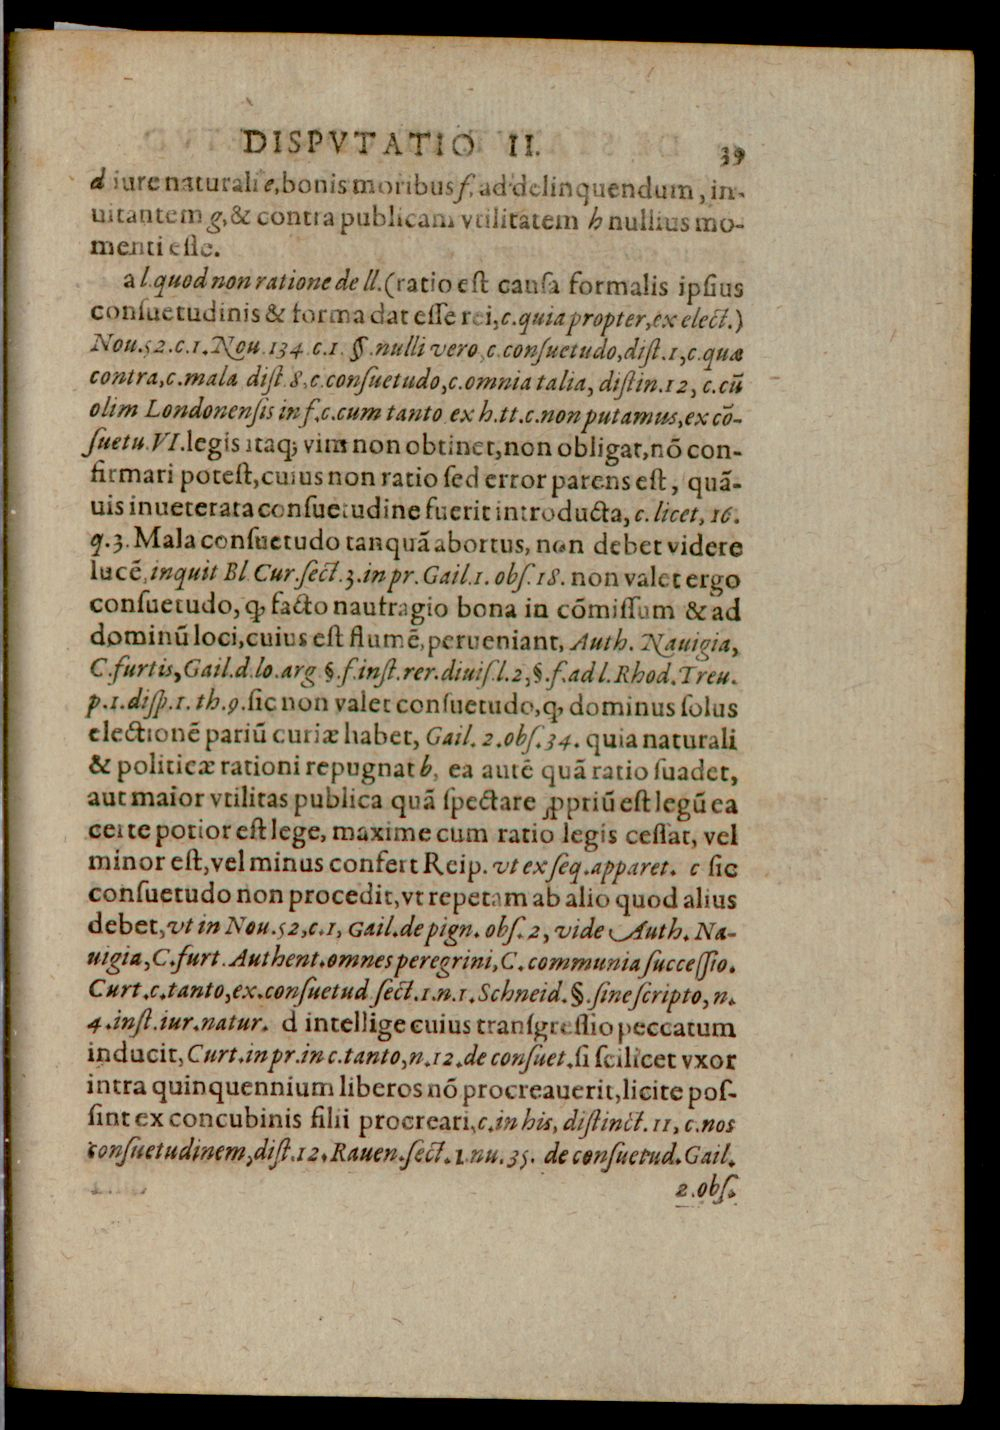 DISPVTATIO II. 39
d iure naturali e, bonis moribus f, ad delinquendum, in-
uitantem g, & contra publicam vtilitatem h nullius mo-
menti esse.
a l. quod non ratione de ll. (ratio est causa formalis ipsius
consuetudinis & forma dat esse rei, c. quia propter, ex elect.)
Nou. 52. c. 1. Nou. 134 c. 1. §. nulli vero, c. consuetudo, dist. 1, c. quæ
contra, c. mala dist. 8, c. consuetudo, c. omnia talia, distin. 12, c. cũ
olim Londonensis in f. c. cum tanto ex h. tt. c. non putamus, ex cõ-
suetu. VI. legis itaq; vim non obtinet, non obligat, nõ con-
firmari potest, cuius non ratio sed error parens est, quã-
uis inueterata consuetudine fuerit introducta, c. licet, 16.
q. 3. Mala consuetudo tanquã abortus, non debet videre
lucẽ, inquit Bl. Cur. sect. 3. in pr. Gail. 1. obs. 18. non valet ergo
consuetudo, q, facto naufragio bona in cõmissum & ad
dominũ loci, cuius est flumẽ, perueniant, Auth. Nauigia,
C. furtis, Gail. d. lo. arg. §. f. inst. rer. diuis. l. 2, §. f. ad l. Rhod. Treu.
p. 1. disp. 1. th. 9. sic non valet consuetudo, q, dominus solus
electionẽ pariũ curiæ habet, Gail. 2. obs. 34. quia naturali
& politicæ rationi repugnat b, ea autẽ quã ratio suadet,
aut maior vtilitas publica quã spectare ꝓpriũ est legũ ea
certe potior est lege, maxime cum ratio legis cessat, vel
minor est, vel minus confert Reip. vt ex seq. apparet. c sic
consuetudo non procedit, vt repetam ab alio quod alius
debet, vt in Nou. 52, c. 1, Gail. de pign. obs. 2, vide Auth. Na-
uigia, C. furt. Authent. omnes peregrini, C. communia successio.
Curt. c. tanto, ex. consuetud sect. 1. n. 1. Schneid. §. sine scripto, n.
4. inst. iur. natur. d intellige cuius transgressio peccatum
inducit, Curt. in pr. in c. tanto, n. 12. de consuet. si scilicet vxor
intra quinquennium liberos nõ procreauerit, licite pos-
sint ex concubinis filii procreari, c. in his, distinct. 11, c. nos
consuetudinem, dist. 12. Rauen. sect. 1. nu. 35. de consuetud. Gail.
2. obs.